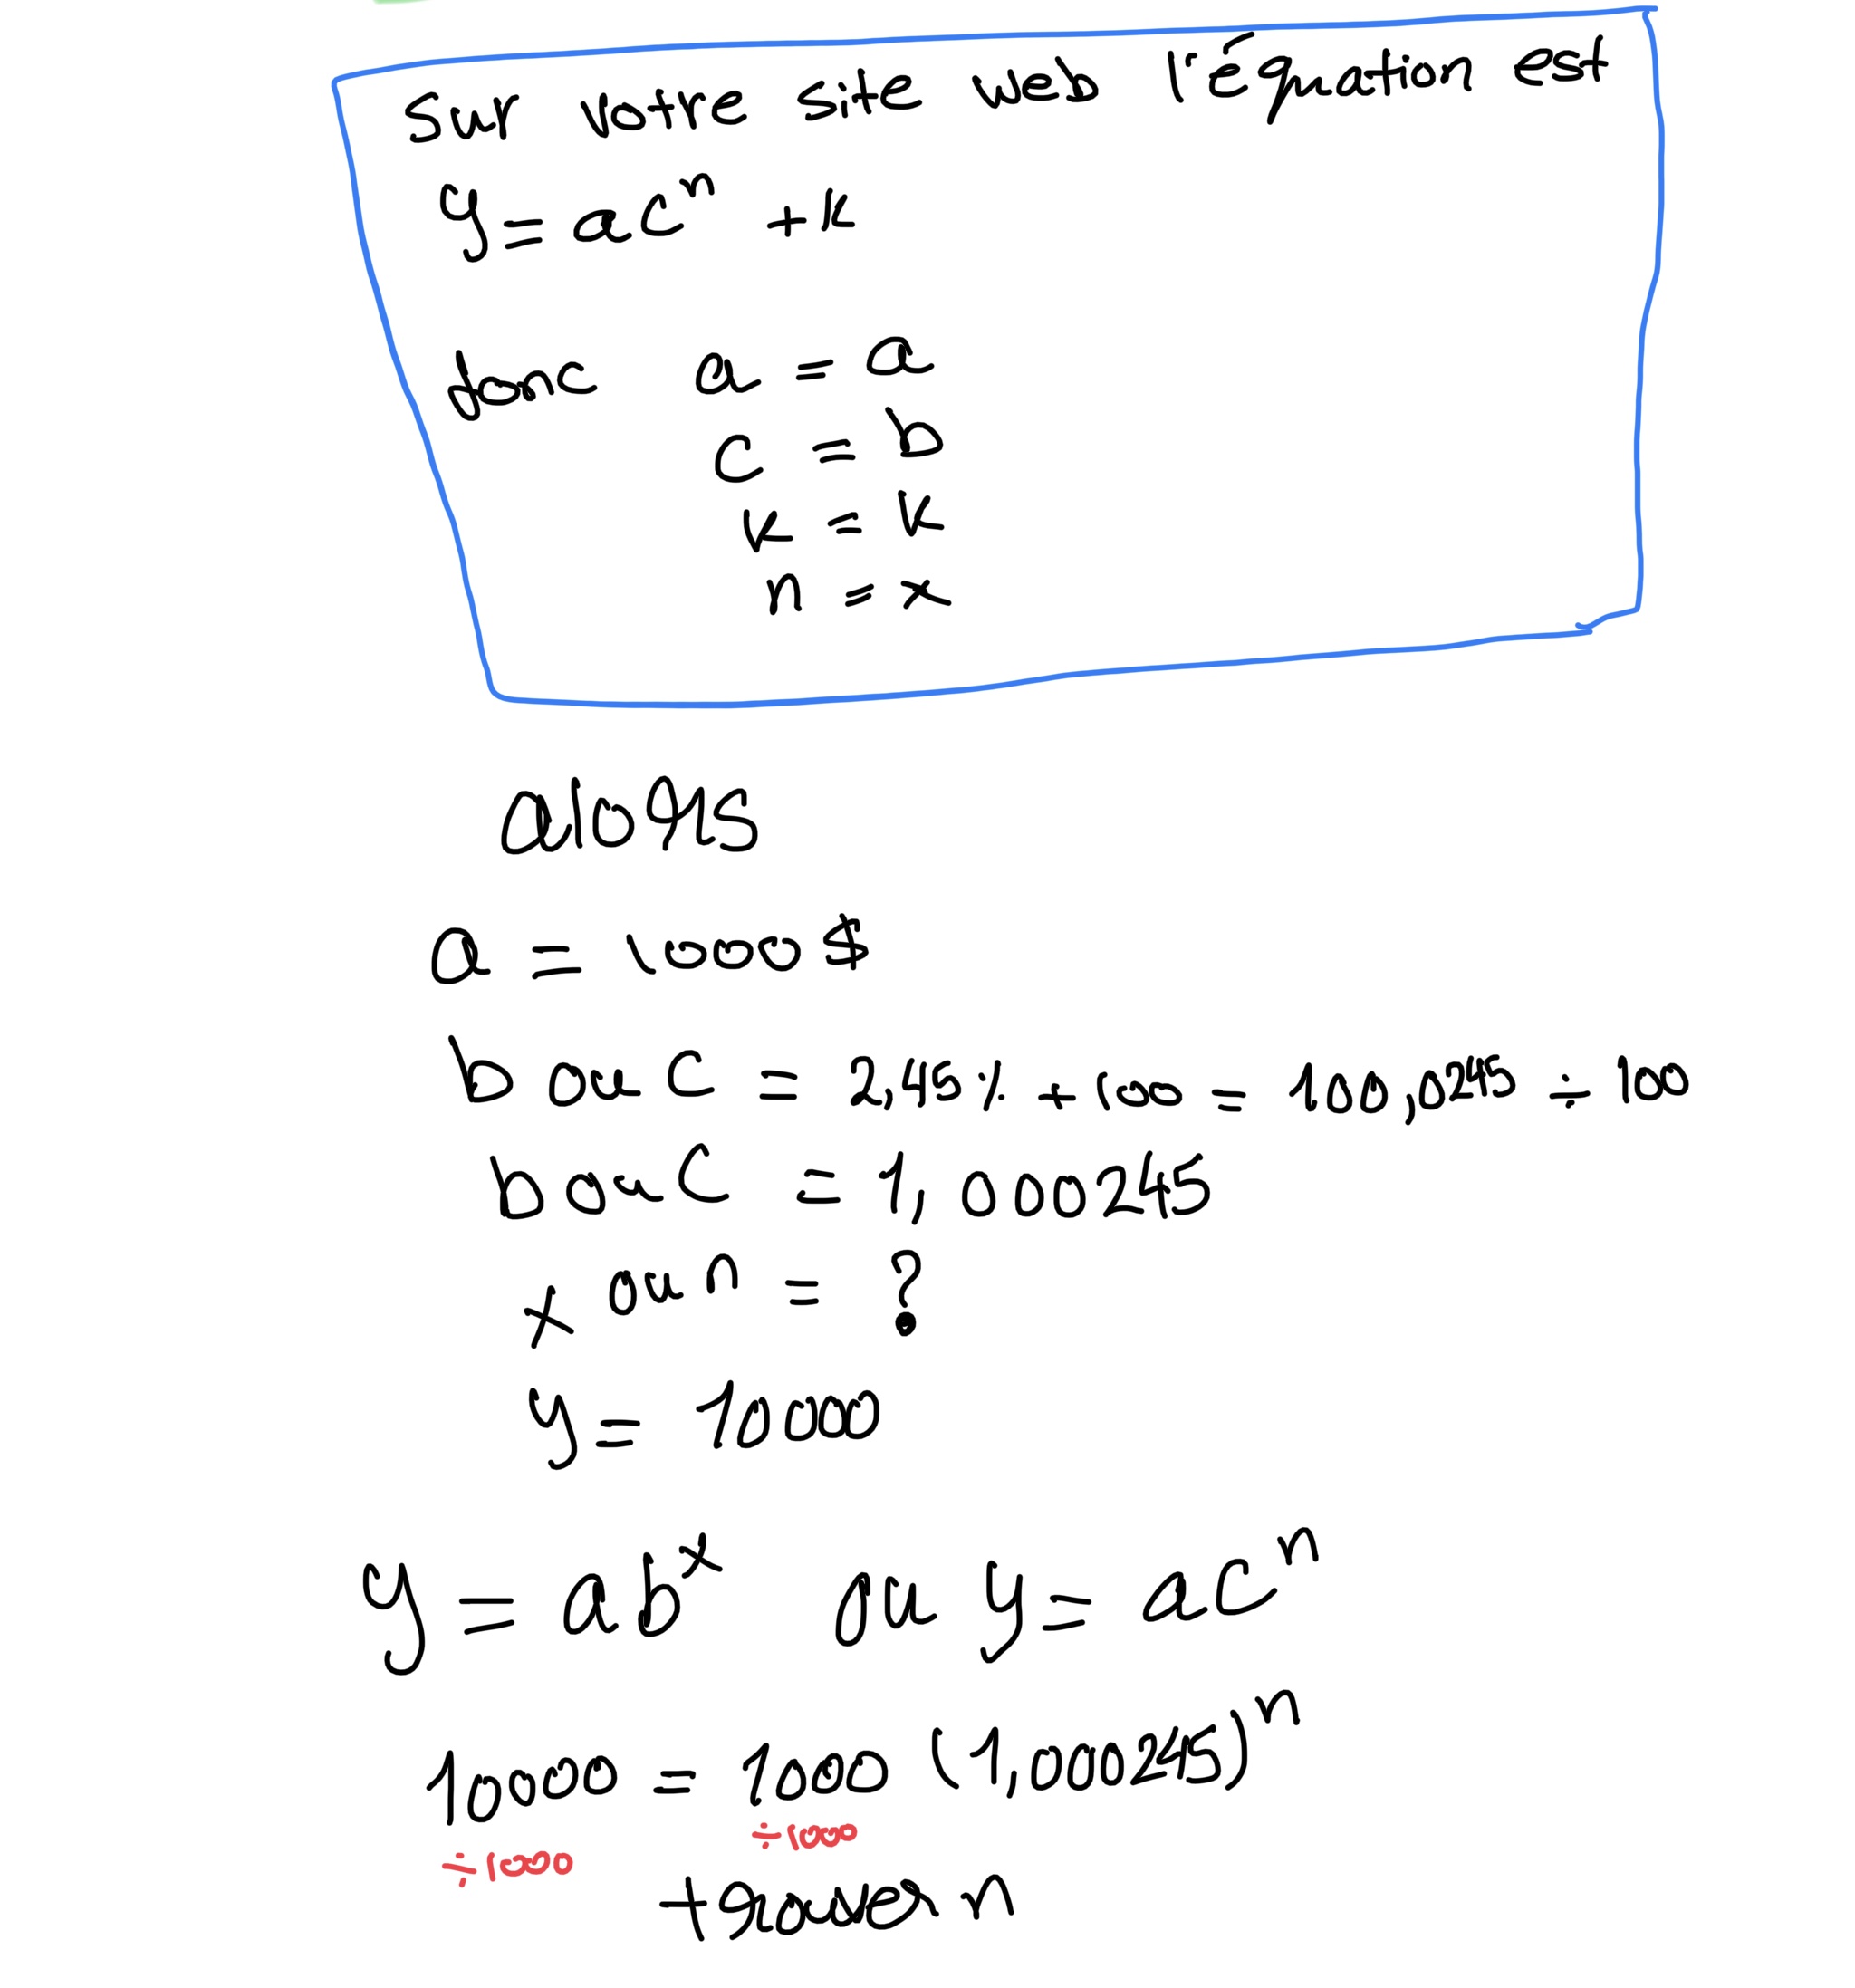 Sur votre site web l'équation est
y = ac^n + k
donc a = a
c = b
k = k
n = x
alors
a = 1000$
b ou c = 2,45% + 100 = 100,0245 ÷ 100
b ou c = 1,000245
x ou n = ?
y = 10000
y = ab^x ou y = ac^n
10000 = 1000 (1,000245)^n
÷1000 ÷1000
trouver n